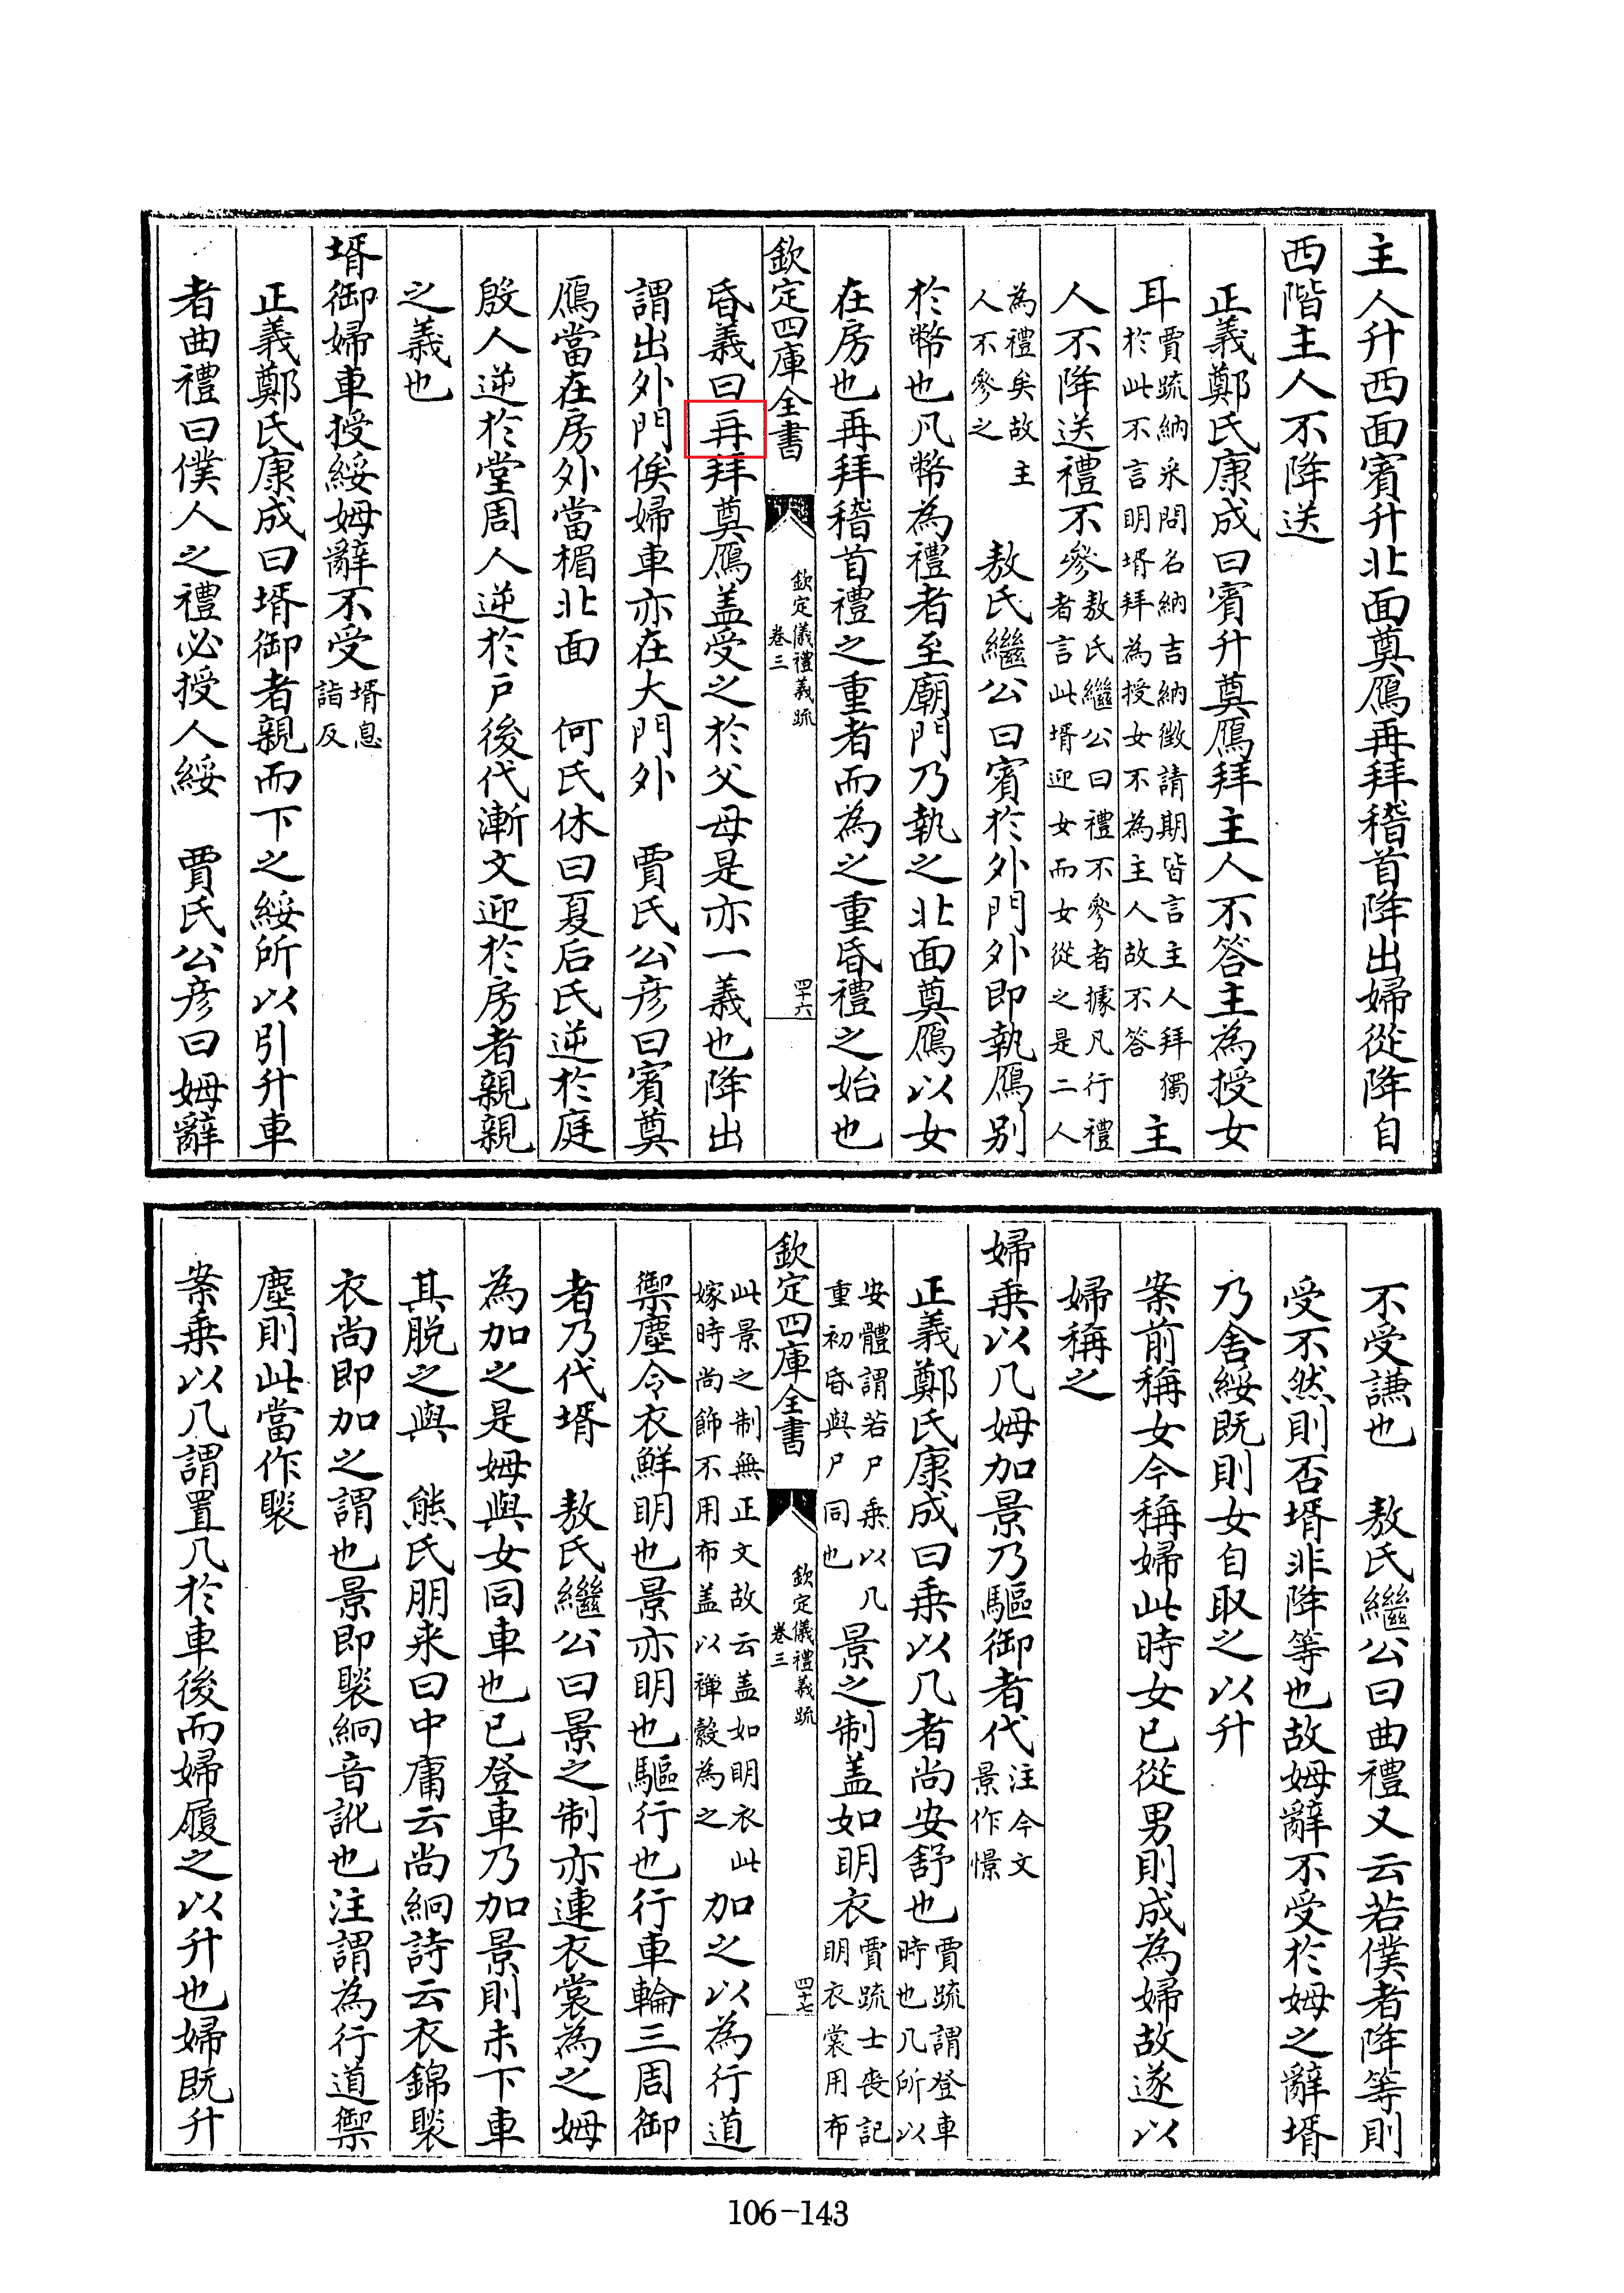 主人升西面賓升北面奠鴈再拜稽首降出婦從降自
西階主人不降送
正義鄭氏康成曰賓升奠鴈拜主人不答主為授女
耳賈疏納采問名納吉納徵請期皆言主人拜獨於此不言明壻拜為授女不為主人故不答主
人不降送禮不參敖氏繼公曰禮不參者據凡行禮者言此壻迎女而女從之是二人
為禮矣故主人不參之 敖氏繼公曰賓於外門外即執鴈别
於幣也凡幣為禮者至廟門乃執之北面奠鴈以女
在房也再拜稽首禮之重者而為之重昏禮之始也
欽定四庫全書 欽定儀禮義疏 卷三 四十六
昏義曰再拜奠鴈盖受之於父母是亦一義也降出
謂出外門俟婦車亦在大門外 賈氏公彦曰賓奠
鴈當在房外當楣北面 何氏休曰夏后氏逆於庭
殷人逆於堂周人逆於戸後代漸文迎於房者親親
之義也
壻御婦車授綏姆辭不受壻息詣反
正義鄭氏康成曰壻御者親而下之綏所以引升車
者曲禮曰僕人之禮必授人綏 賈氏公彦曰姆辭
不受謙也 敖氏繼公曰曲禮又云若僕者降等則
受不然則否壻非降等也故姆辭不受於姆之辭壻
乃舍綏既則女自取之以升
案前稱女今稱婦此時女已從男則成為婦故遂以
婦稱之
婦乗以几姆加景乃驅御者代注今文景作憬
正義鄭氏康成曰乗以几者尚安舒也賈疏謂登車時也几所以
安體謂若尸乗以几重初昏與尸同也景之制盖如明衣賈疏士喪記明衣裳用布
欽定四庫全書 欽定儀禮義疏 卷三 四十七
此景之制無正文故云盖如明衣此嫁時尚飾不用布盖以襌縠為之加之以為行道
禦塵令衣鮮明也景亦明也驅行也行車輪三周御
者乃代壻 敖氏繼公曰景之制亦連衣裳為之姆
為加之是姆與女同車也已登車乃加景則未下車
其脱之與 熊氏朋来曰中庸云尚絅詩云衣錦褧
衣尚即加之謂也景即褧絅音訛也注謂為行道禦
塵則此當作褧
案乗以几謂置几於車後而婦履之以升也婦既升
106-143